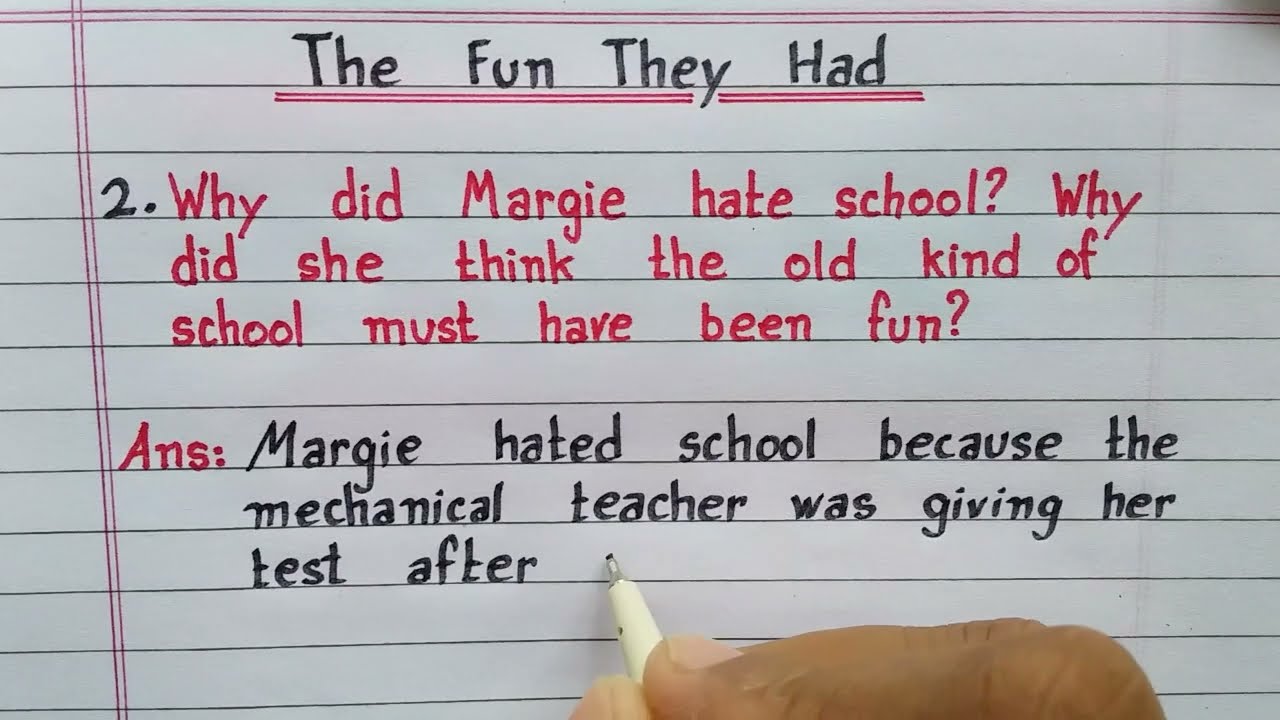 The Fun They Had
2. Why did Margie hate school? Why
did she think the old kind of
school must have been fun?
Ans: Margie hated school because the
mechanical teacher was giving her
test after